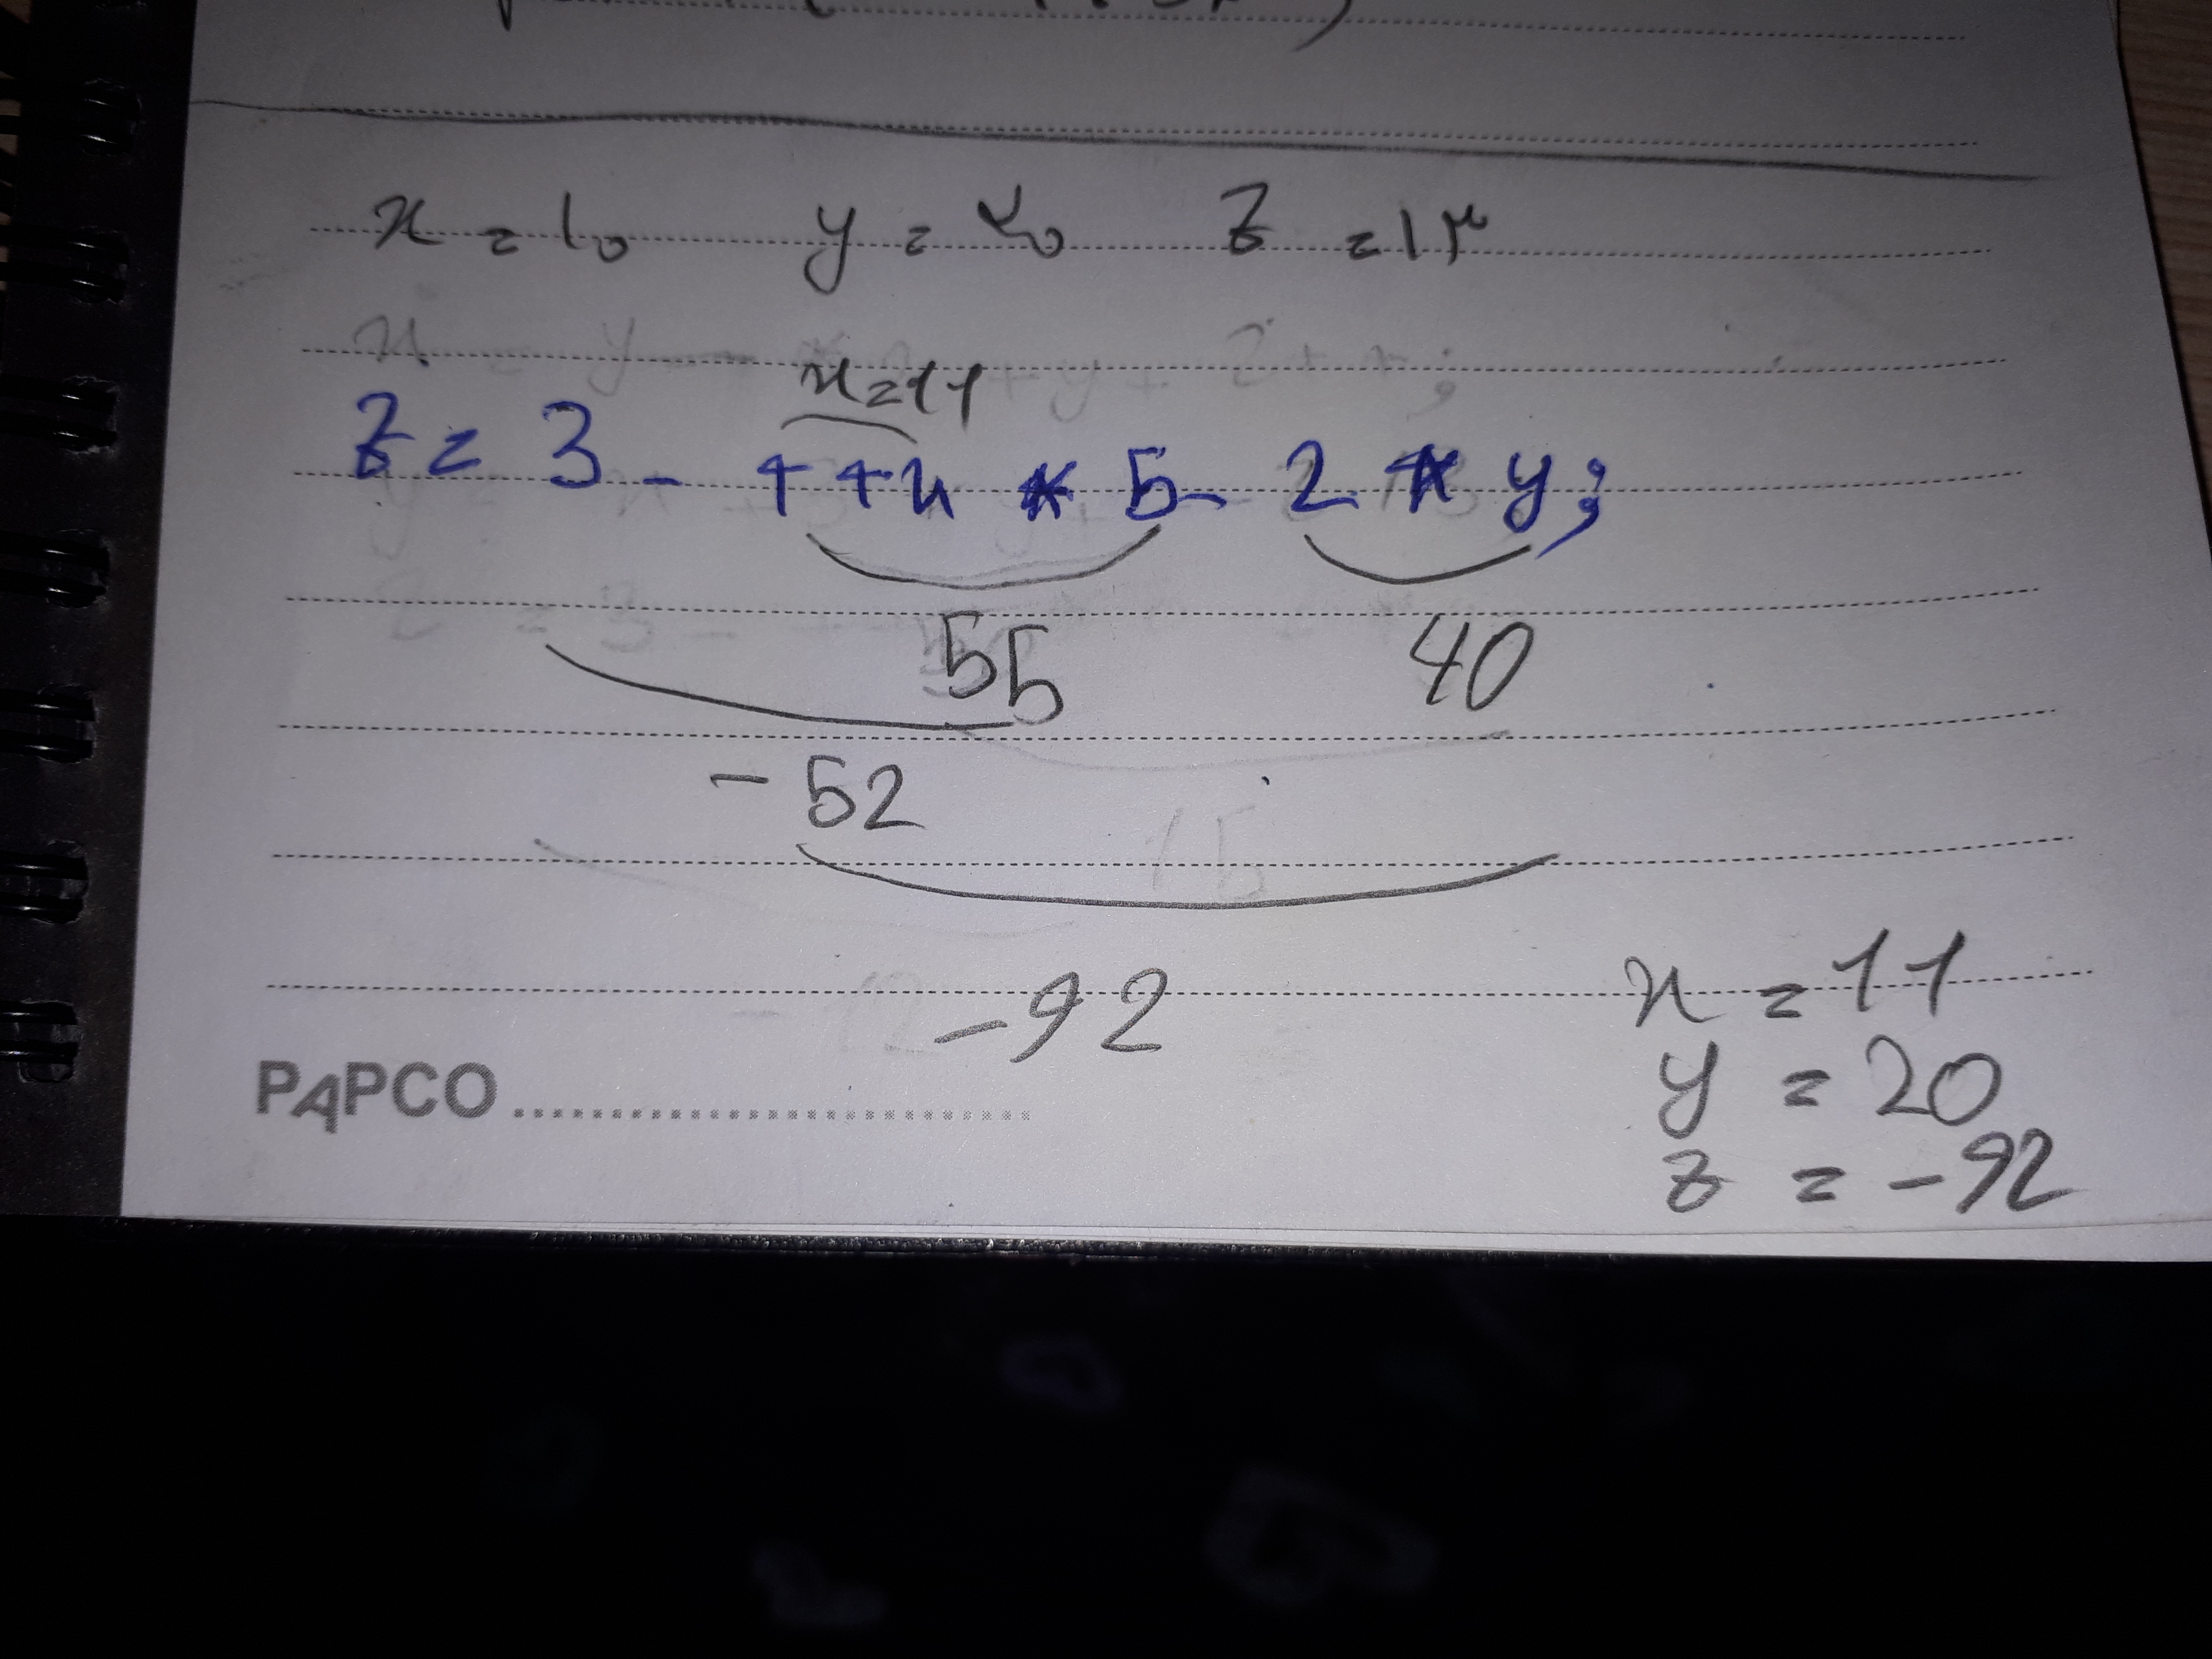 x = ۱۰ y = ۲۰ z = ۱۳
x=11
z = 3 - ++x * 5 - 2 * y;
55 40
-52
-92
x = 11
y = 20
z = -92
PAPCO